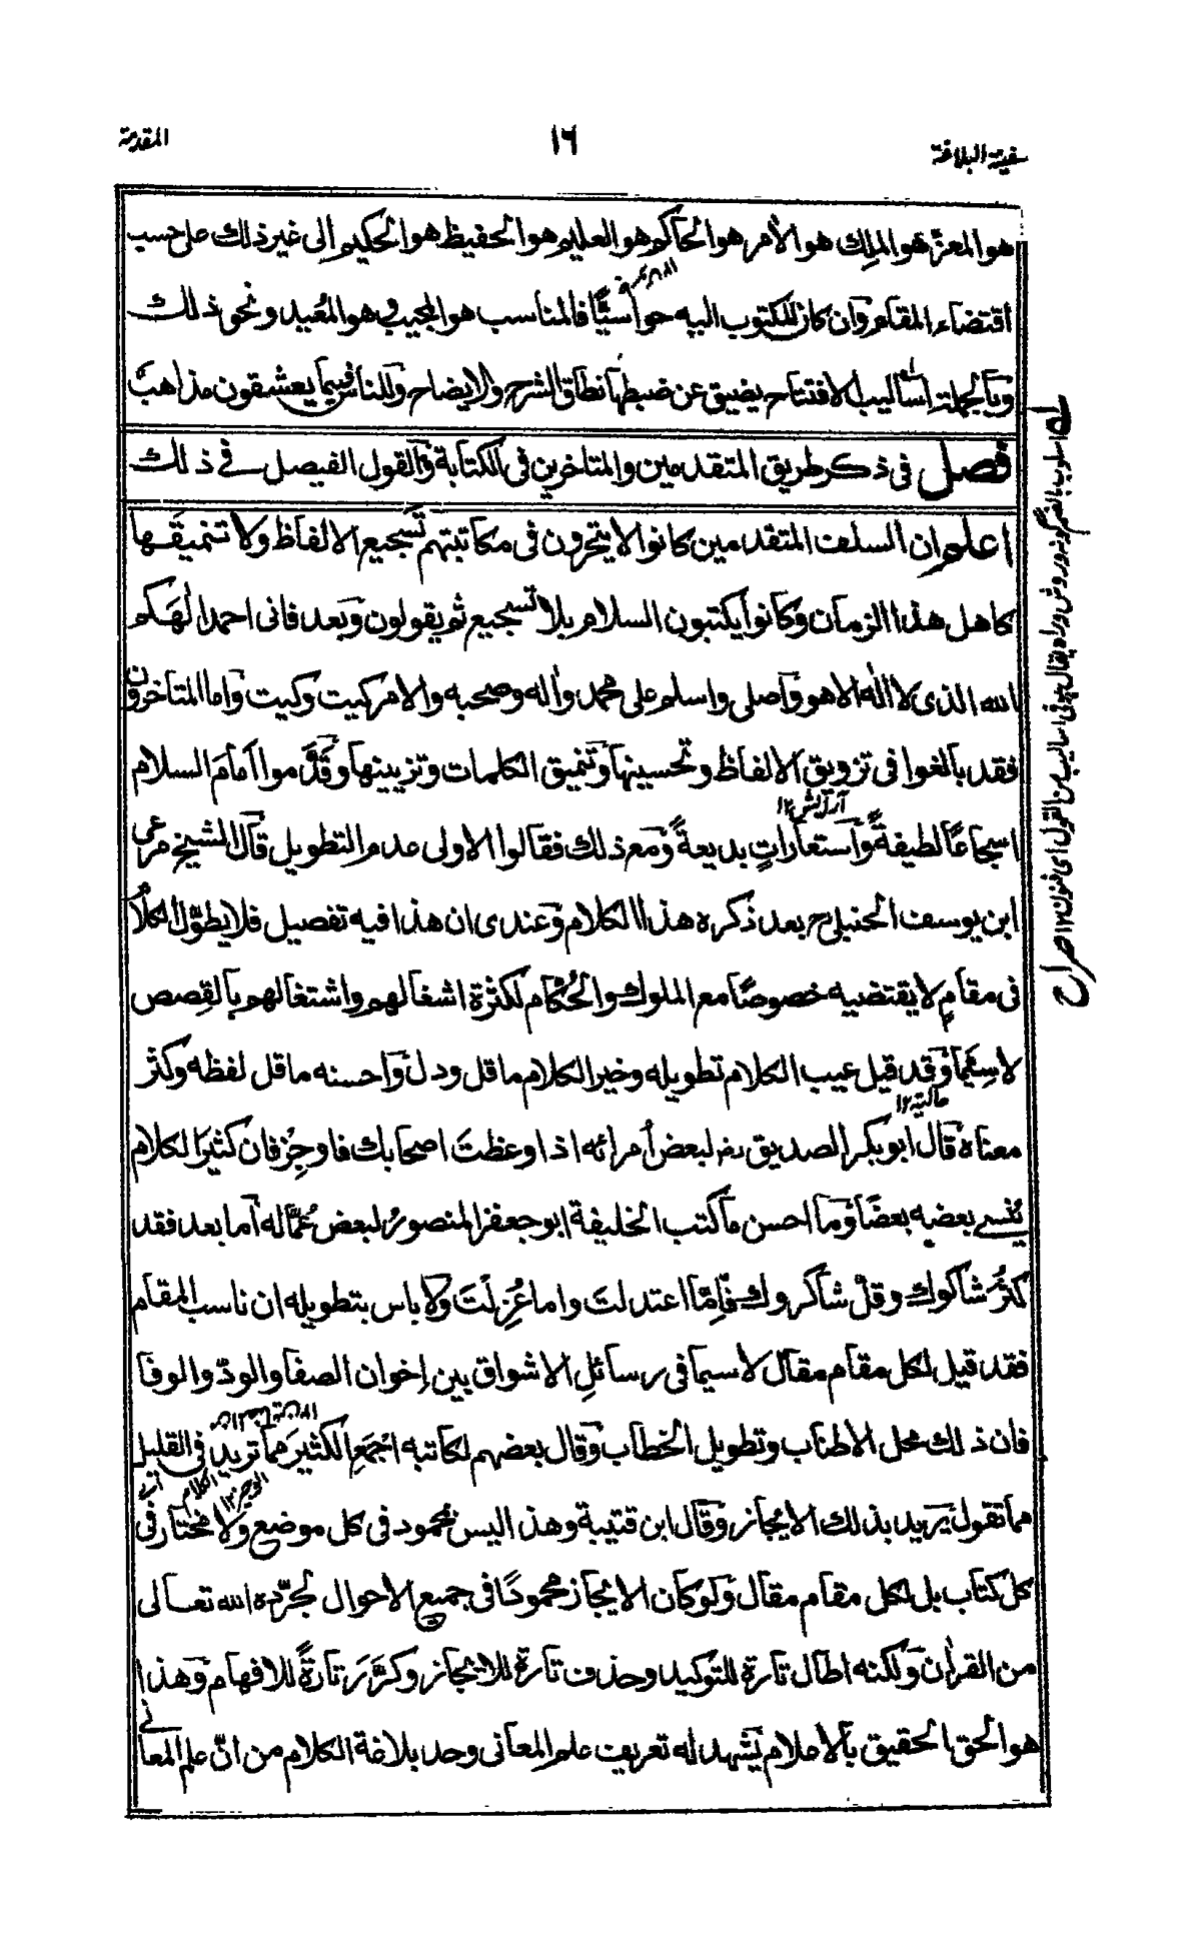 سفينة البلاغة
١٦
المقدمة
هو المعزّ هو الملِك هو الآمر هو الحاكم هو العليم هو الحفيظ هو الحكيم الى غير ذلك على حسب
اقتضاء المقام وان كان للمكتوب اليه حواسيًّا فالمناسب هو المجيب هو المُعيد ونحو ذلك
وبالجملة اساليب الافتتاح يضيق عن ضبطها نطاق الشرح والايضاح وللناس فيما يعشقون مذاهبُ
فصل فى ذكر طريق المتقدمين والمتاخرين فى الكتابة والقول الفيصل فى ذلك
اعلم ان السلف المتقدمين كانوا لا يتحرون فى مكاتبتهم تسجيع الالفاظ ولا تنميقها
كاهل هذا الزمان وكانوا يكتبون السلام بلا تسجيع ثم يقولون وبعد فانى احمد الٰهكم
الله الذى لا اله الا هو واصلى واسلم على محمد واٰله وصحبه والامر كيت وكيت واما المتاخرون
فقد بالغوا فى تزويق الالفاظ وتحسينها وتنميق الكلمات وتزيينها وقَدَّموا امامَ السلام
آرائش ١٢
اسجاعًا لطيفةً واستعاراتٍ بديعةً ومع ذلك فقالوا الاولى عدم التطويل قال الشيخ مرعى
ابن يوسف الحنبلى رح بعد ذكره هذا الكلام وعندى ان هذا فيه تفصيل فلا يطوّل الكلام
فى مقامٍ لا يقتضيه خصوصًا مع الملوك والحُكّام لكثرة اشغالهم واشتغالهم بالقِصص
لاسِيّما وقد قيل عيب الكلام تطويله وخير الكلام ما قل ودل واحسنه ما قل لفظه وكثر
معناه قال ابو بكر الصديق رضـ لبعض اُمرائه اذا وعظتَ اصحابك فاوجِز فان كثيرَ الكلام
يُنسى بعضه بعضًا وما احسن ما كتب الخليفة ابو جعفر المنصورُ لبعض عُمّاله اما بعد فقد
كثُر شاكوك وقلّ شاكروك فاِمّا اعتدلتَ واما عُزِلتَ ولا باس بتطويله ان ناسب المقام
فقد قيل لكل مقام مقال لاسيما فى رسائلِ الاشواق بين اِخوان الصفا والودّ والوفا
فان ذلك محل الاطناب وتطويل الخطاب وقال بعضهم لكاتبه اجمَعِ الكثيرَ مما تريد فى القليل
مما تقول يريد بذلك الايجاز وقال ابن قتيبة وهذا ليس محمود فى كل موضع ولا مختار فى
كل كتاب بل لكل مقام مقال ولو كان الايجاز محمودًا فى جميع الاحوال لجرّده الله تعالى
من القراٰن ولكنه اطال تارة للتوكيد وحذف تارة للايجاز وكرَّرَ تارةً للافهام وهذا
هو الحق الحقيق بالاعلام يَشهد له تعريف علم المعانى وحد بلاغة الكلام من انّ علم المعانى